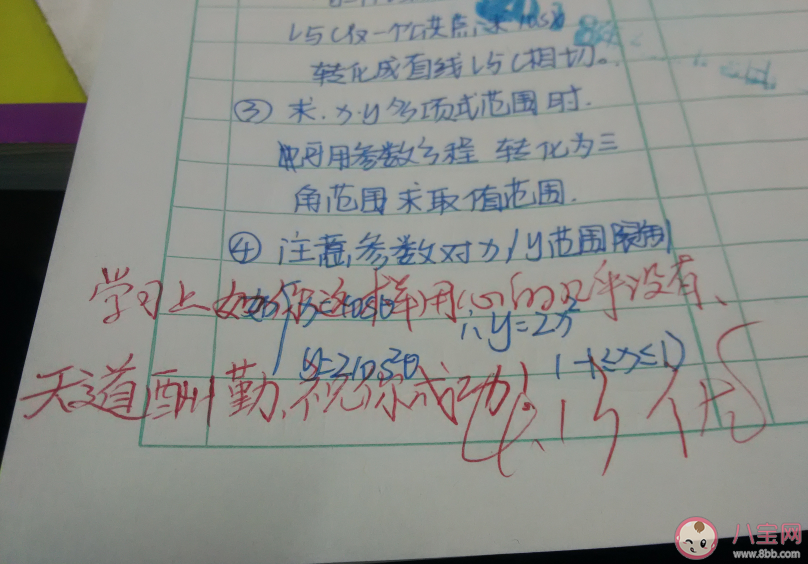 L与C仅一个公共点,求
转化成直线L与C相切。
③ 求x.y多项式范围时.
可用参数方程 转化为三
角范围求取值范围.
④ 注意,参数对x/y范围限制
学习上如你这样用心的几乎没有、
x=cosθ
∴y=2x²
y=2cos²θ
(-1≤x≤1)
天道酬勤,祝你成功!
4.13 优
八宝网
www.8bb.com